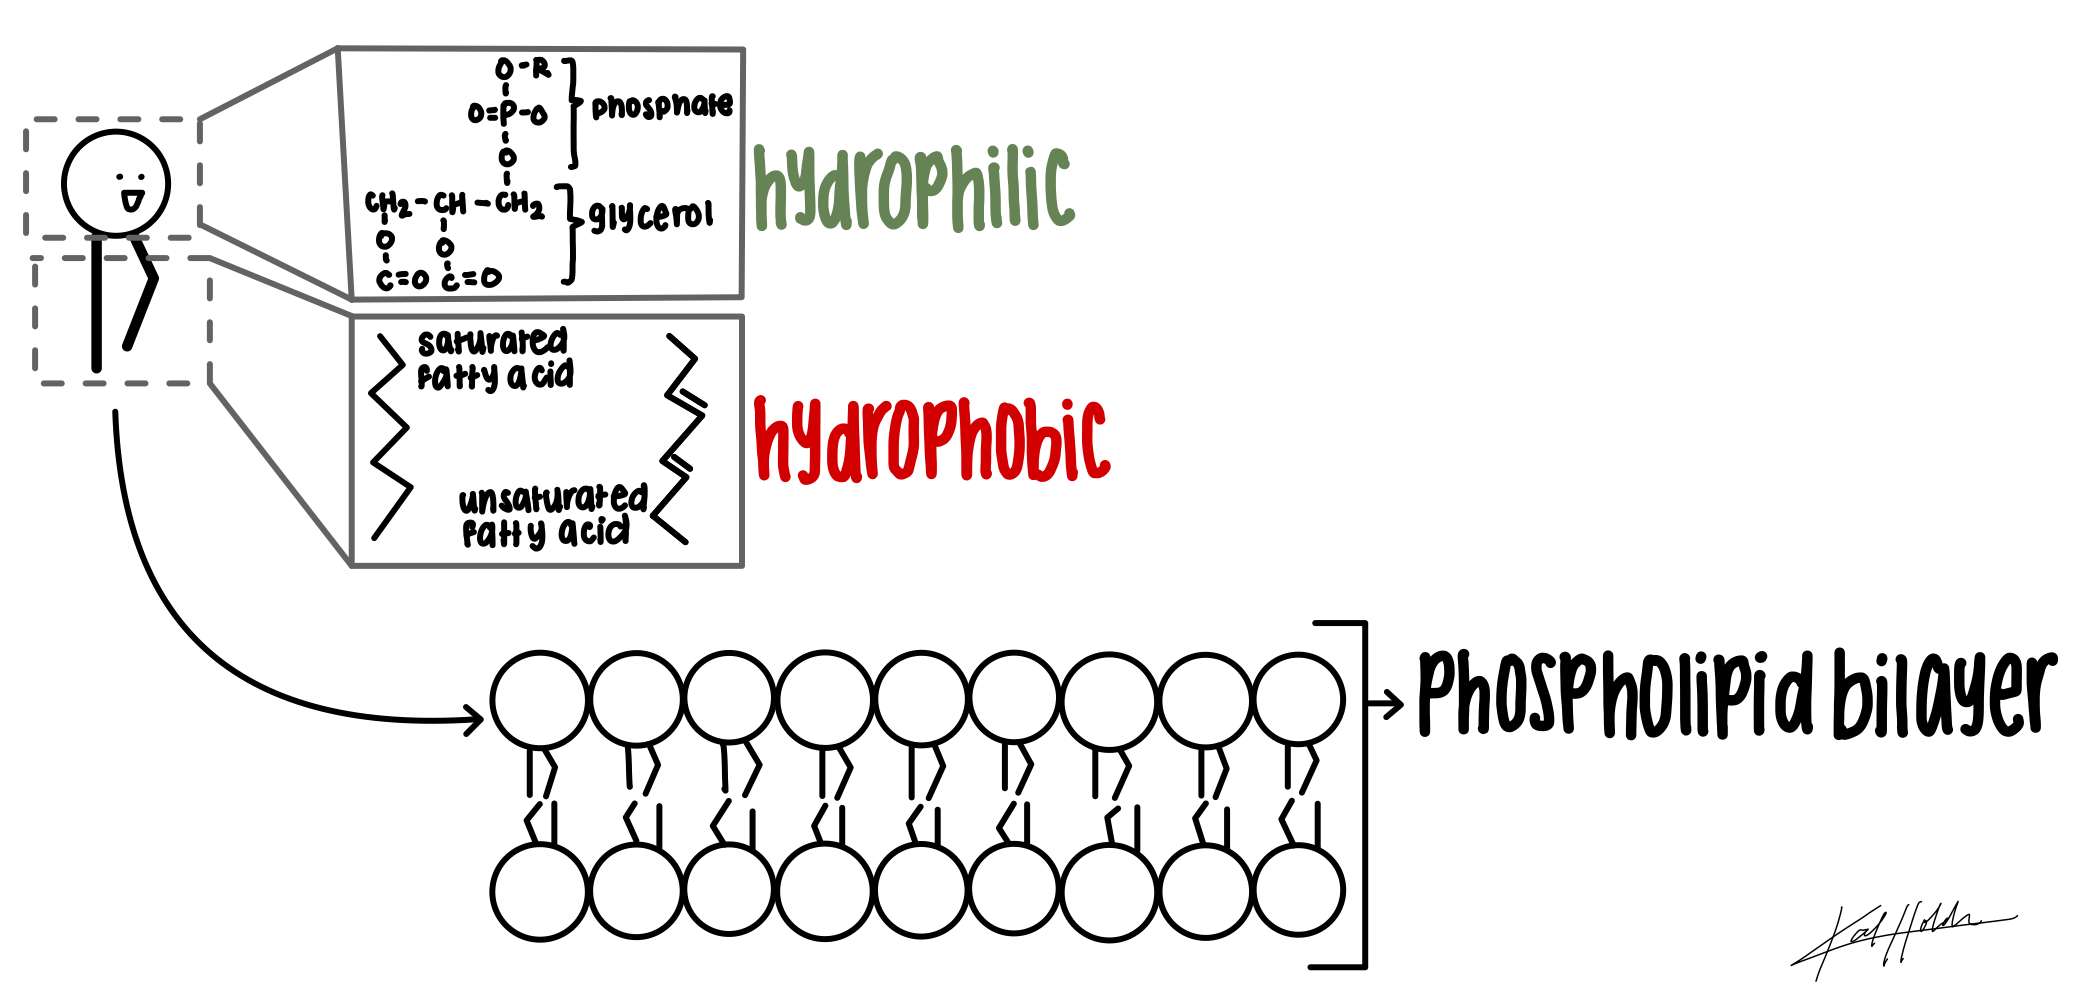 O-R
O=P-O
O
phosphate
CH2-CH-CH2
O O
C=O C=O
glycerol
hydrophilic
saturated
fatty acid
unsaturated
fatty acid
hydrophobic
Phospholipid bilayer